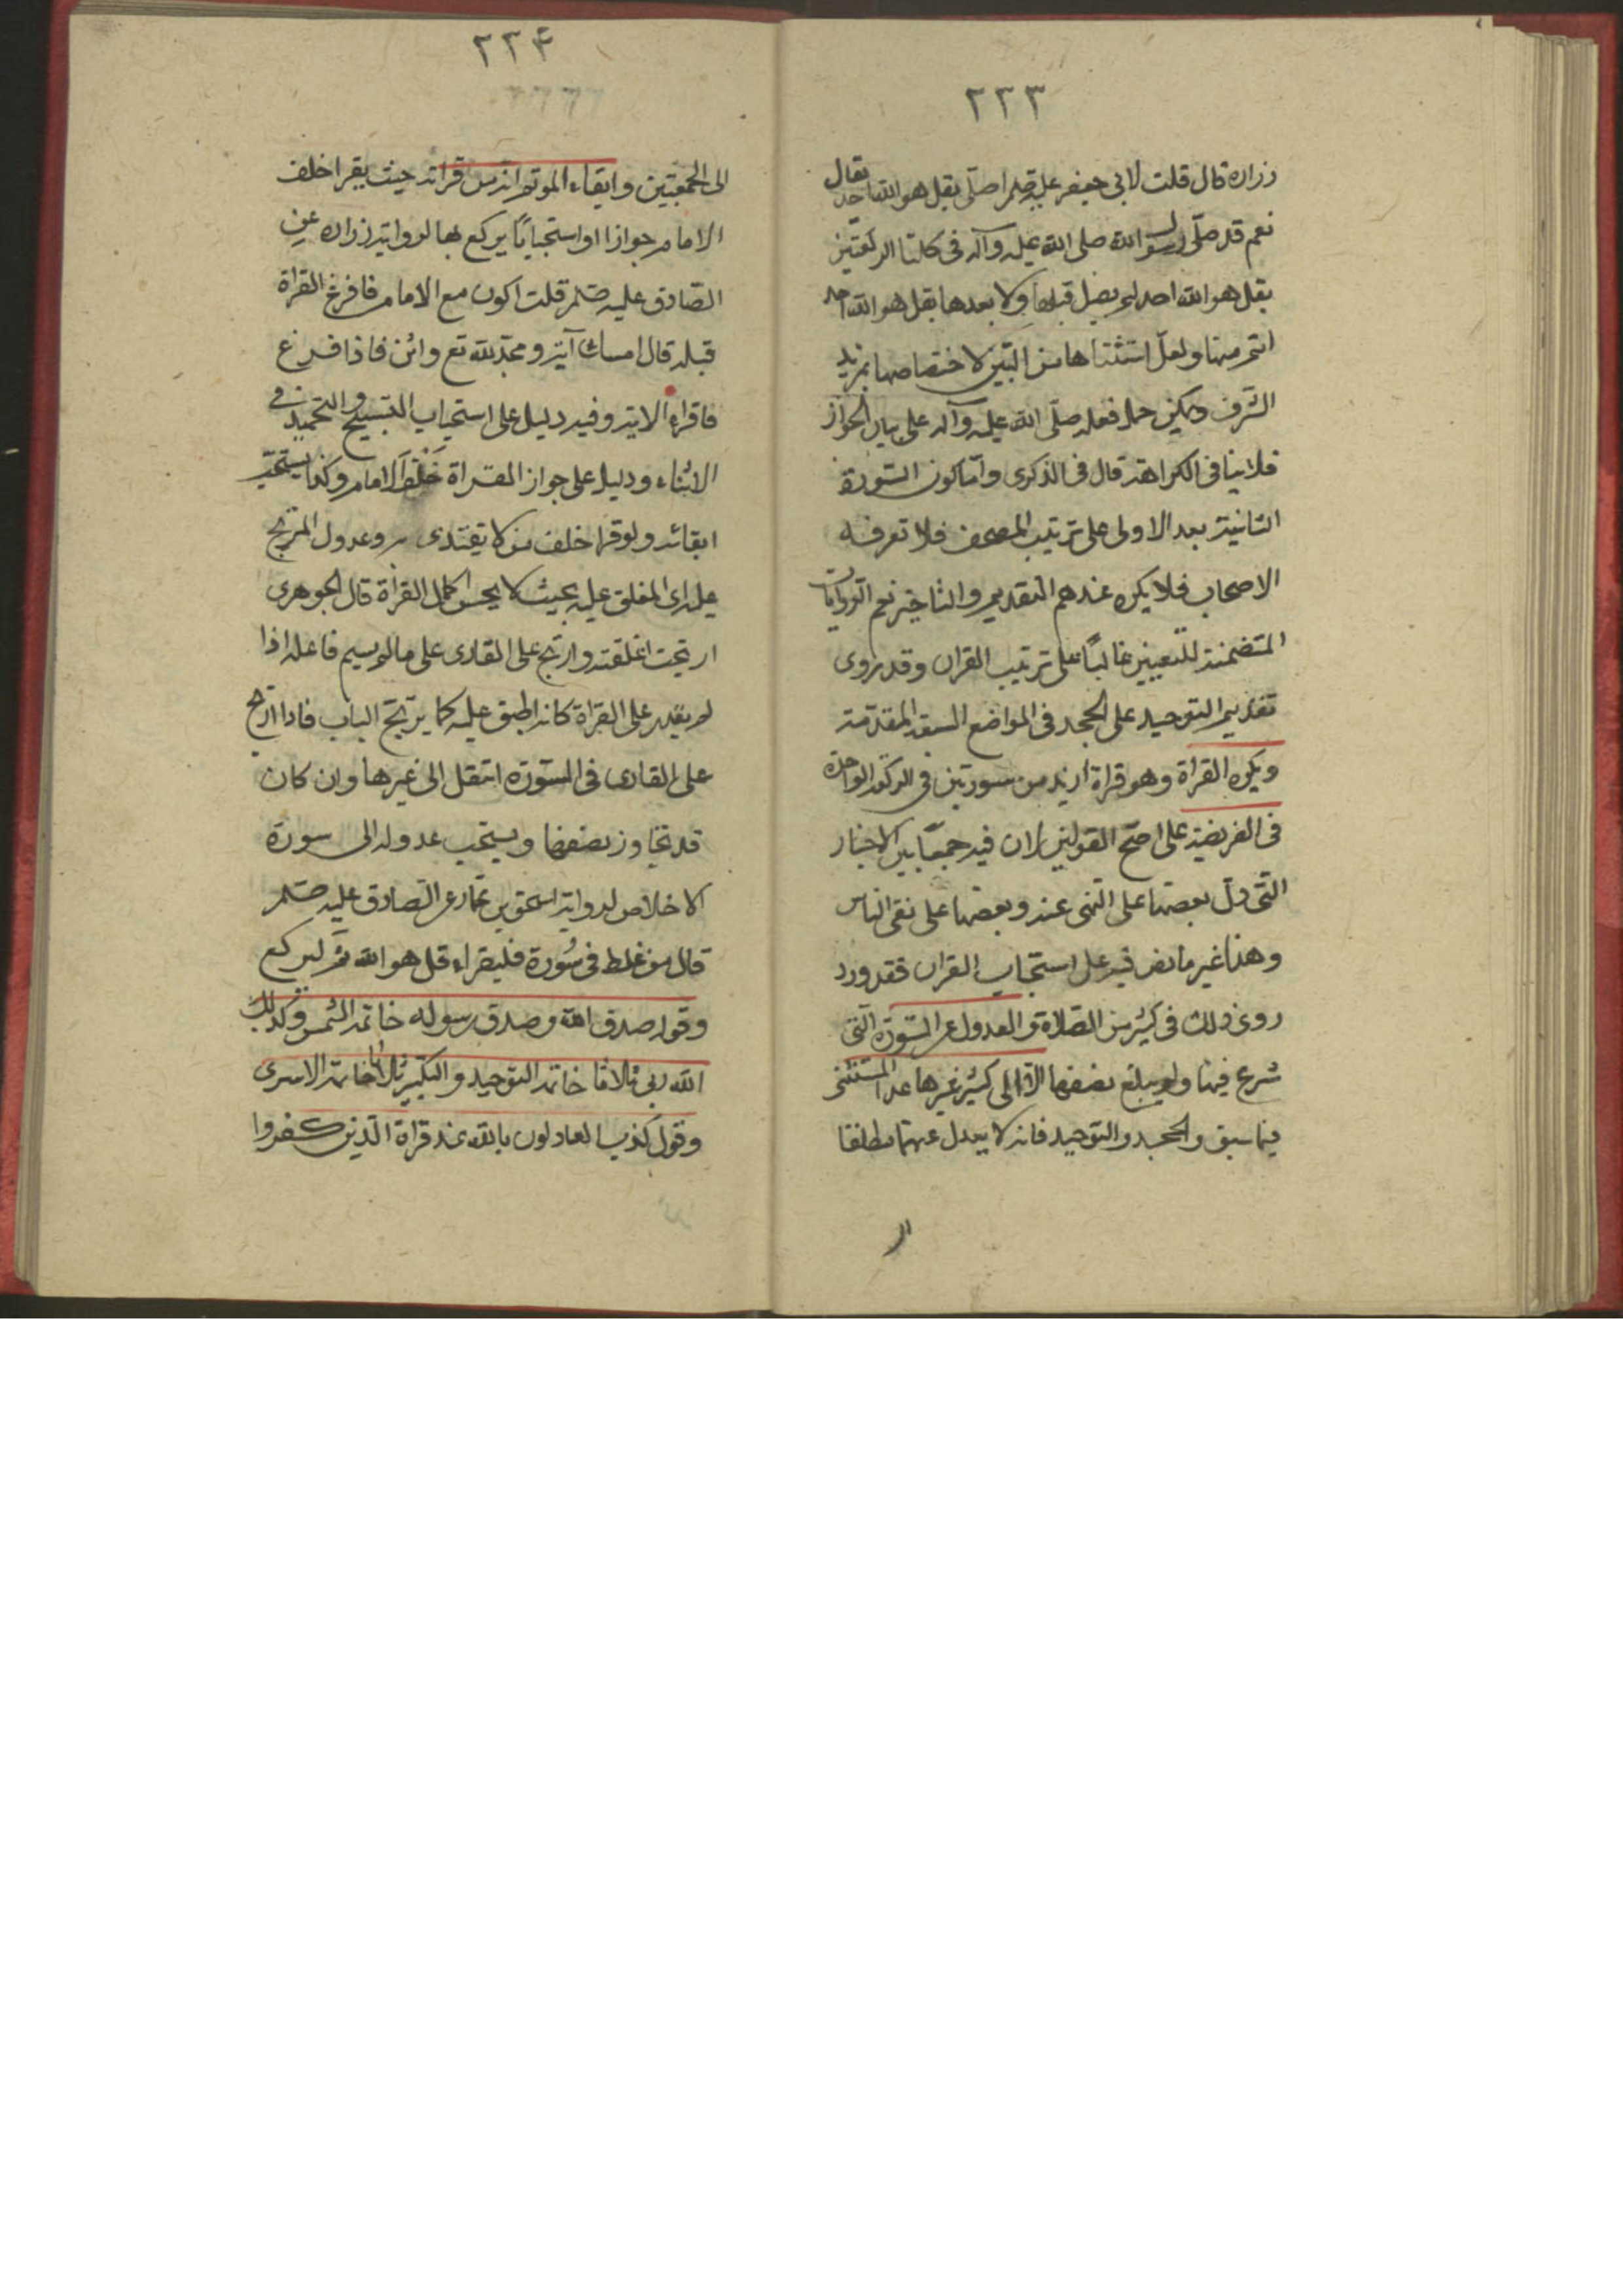 ٢٢٣
زراره قال قلت لابي جعفر عليه صلم اصلّي بقل هو الله احد فقال
نعم قد صلّى رسول الله صلى الله عليه وآله في كلتا الركعتين
بقل هو الله احد لم يصل قبلها ولا بعدها بقل هو الله احد
اتم منها ولعلّ استثناها من البين لاختصاصها بمزيد
الشرف ويمكن حمل فعله صلّى الله عليه وآله على بيان الجواز
فلا ينافي الكراهة قال في الذكرى وامّا كون السّورة
الثانية بعد الاولى على ترتيب المصحف فلا تعرفه
الاصحاب فلا يكره عندهم التقديم والتاخير نعم الروايات
المتضمنة للتعيين غالبًا على ترتيب القران وقد روى
تقديم التوحيد على الجحد في المواضع السبعة المقدّمة
ويكره القراة وهو قراة ازيد من سورتين في الركعة الواحدة
في الفريضة على اصّح القولين لان فيه جمعًا بين الاخبار
التّي دلّ بعضها على النهي عنه وبعضها على نفي الباس
وهذا غير ما نص فيه على استحباب القران فقد ورد
روى ذلك في كثير من الصّلاة والعدول عن السّورة التي
شرع فيها ولم يبلغ نصفها الا الى كثير غيرها عدا المستثنى
فيما سبق والجحد والتوحيد فانه لا يعدل عنهما مطلقا
ال
٢٢۴
الى الجمعتين وابقاء الموتم اية من قراته حيث يقرا خلف
الامام جوازا او استحبابًا يركع بها لرواية زراره عن
الصّادق عليه صلم قلت اكون مع الامام فافرغ القراة
قبله قال امسك آية ومجّد الله تع واثن فاذا فرغ
فاقراء الاية وفيه دليل على استحباب التسبيح والتحميد في
الاثناء ودليل على جواز القراة خَلْفَ الامام وكذا يستحب
ابقائه ولو قرا خلف من لا يقتدى به وعدول المرتج
عليه اى المغلق عليه بحيث لا يحسن اكمال القراة قال الجوهري
ارتجت اغلقته وارتج على القاري على ما لم يسم فاعله اذا
لم يقدر على القراة كانه اطبق عليه كما يرتج الباب فاذا ارتج
على القاري في السّورة انتقل الى غيرها وان كان
قد تجاوز نصفها ويستحب عدوله الى سورة
الاخلاص لرواية اسحق بن عمار عن الصّادق عليه صلم
قال من غلط في سُورة فليقراء قل هو الله ثم ليركع
وقول صدق الله وصدق رسوله خاتمة الشمس وكذلك
الله ربى ثلاثا خاتمة التوحيد والتكبير ثلاثا خاتمة الاسرى
وقول كذب العادلون بالله عند قراة الّذين كفروا